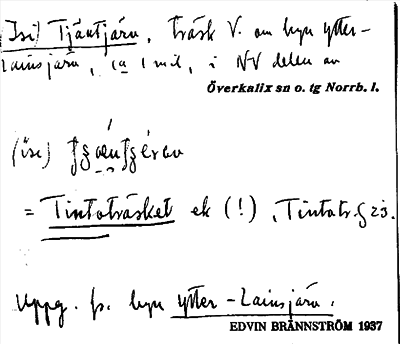 (Isi) Tjäutjärv, träsk V. om byn Ytter-
Lainsjärv, ca 1 mil, i NV delen av
Överkalix sn o. tg Norrb. l.
= Tintoträsket ek (!), Tintotr.
Uppg. fr. byn Ytter-Lainsjärv.
EDVIN BRÄNNSTRÖM 1937